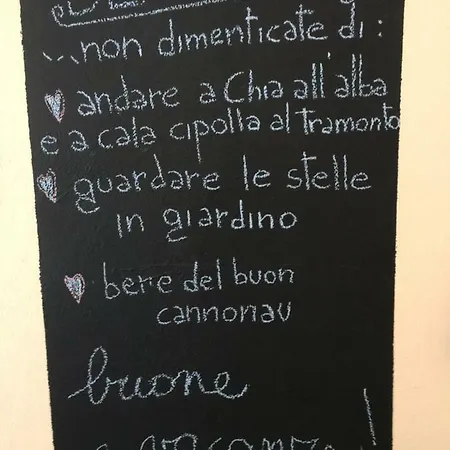 ...non dimenticate di:
andare a Chia all'alba
e a cala cipolla al tramonto
guardare le stelle
in giardino
bere del buon
cannonau
buone